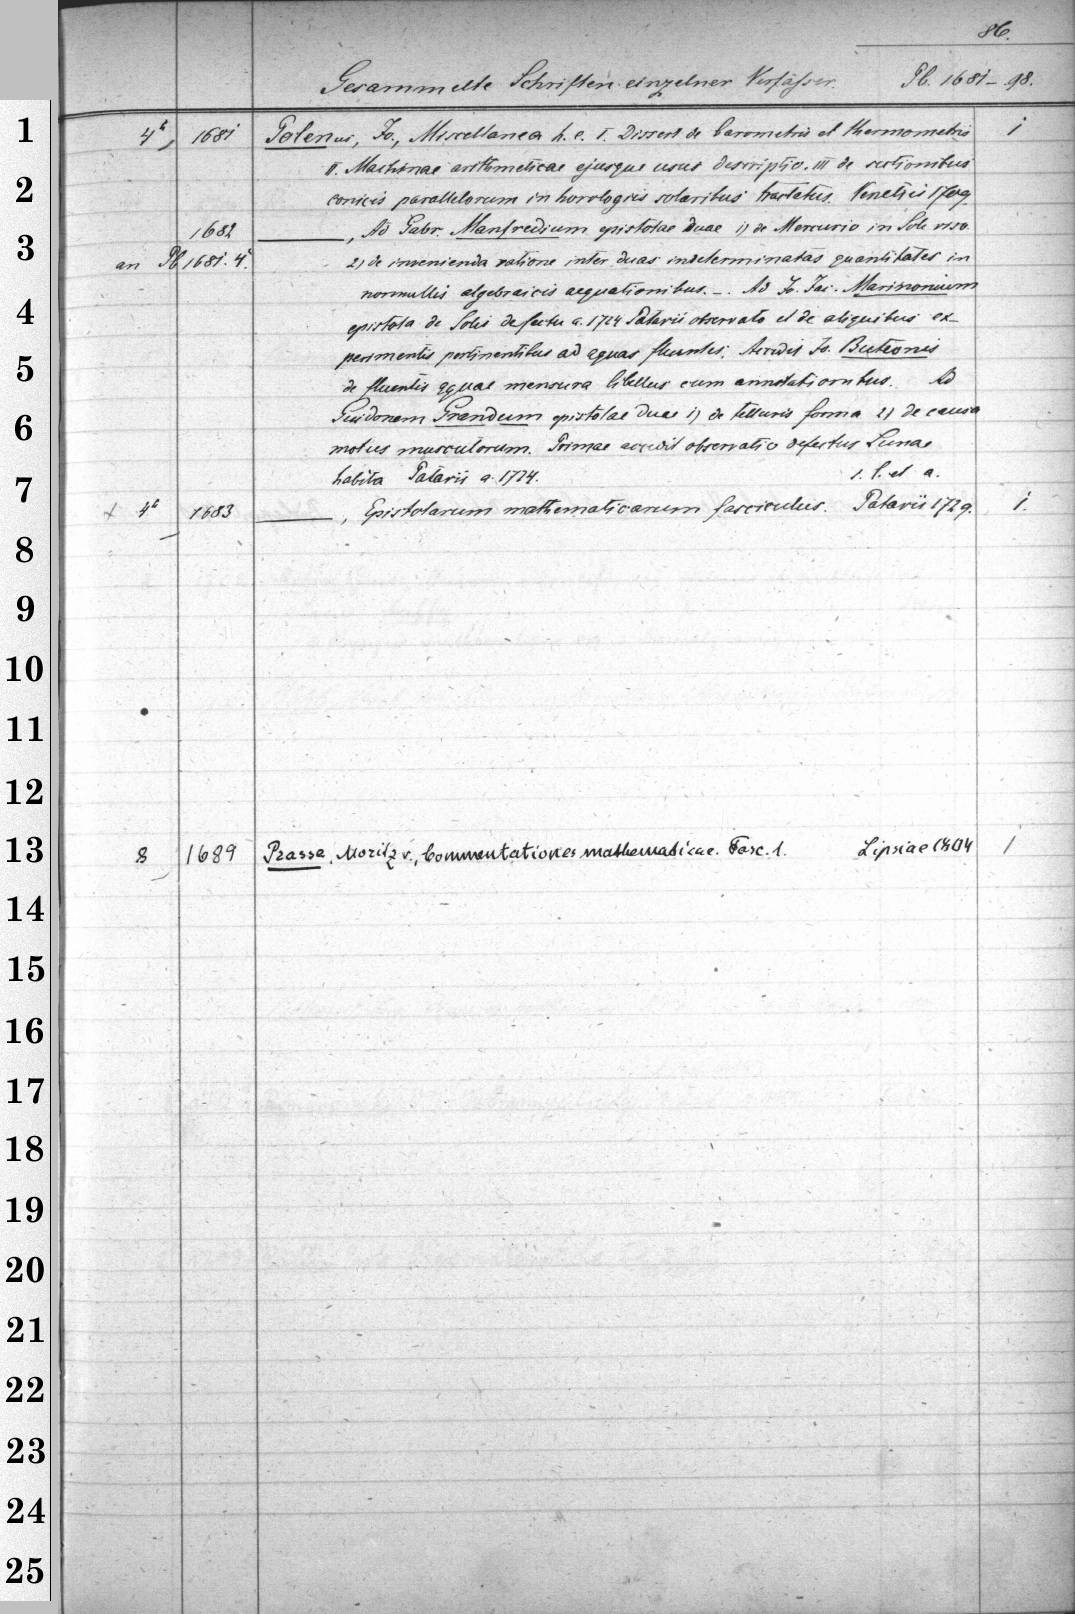 86.
Gesammelte Schriften einzelner Verfasser. Pb. 1681–98.
1 4°, 1681 Polenus, Jo., Miscellanea h. e. I. Dissert de barometris et thermometris 1
II. Machinae arithmeticae ejusque usus descriptio. III de sectionibus
2 conicis parallelorum in horologiis solaribus tractatus. Venetiis 1709
1682 ———, Ad Gabr. Manfredium epistolae duae 1) de Mercurio in Sole viso.
3 an Pb 1681. 4°. 2) de invenienda ratione inter duas indeterminatas quantitates in
nonnullis algebraicis aequationibus. – Ad Jo. Jac. Marinonium
4 epistola de Solis defectu a. 1724 Patavii observato et de aliquibus ex-
perimentis pertinentibus ad aquas fluentes; Accedit Jo. Buteonis
5 de fluentis aquae mensura libellus cum annotationibus. Ad
Guidonem Grandum epistolae duae 1) de telluris forma 2) de causa
6 motus musculorum. Primae accedit observatio defectus Lunae
habita Patavii a. 1724. s. l. et a.
7
× 4° 1683 ———, Epistolarum mathematicarum fasciculus. Patavii 1729. 1.
8
9
10
11
12
13 8 1689 Prasse, Moritz v., Commentationes mathematicae. Fasc. 1. Lipsiae 1804 1
14
15
16
17
18
19
20
21
22
23
24
25